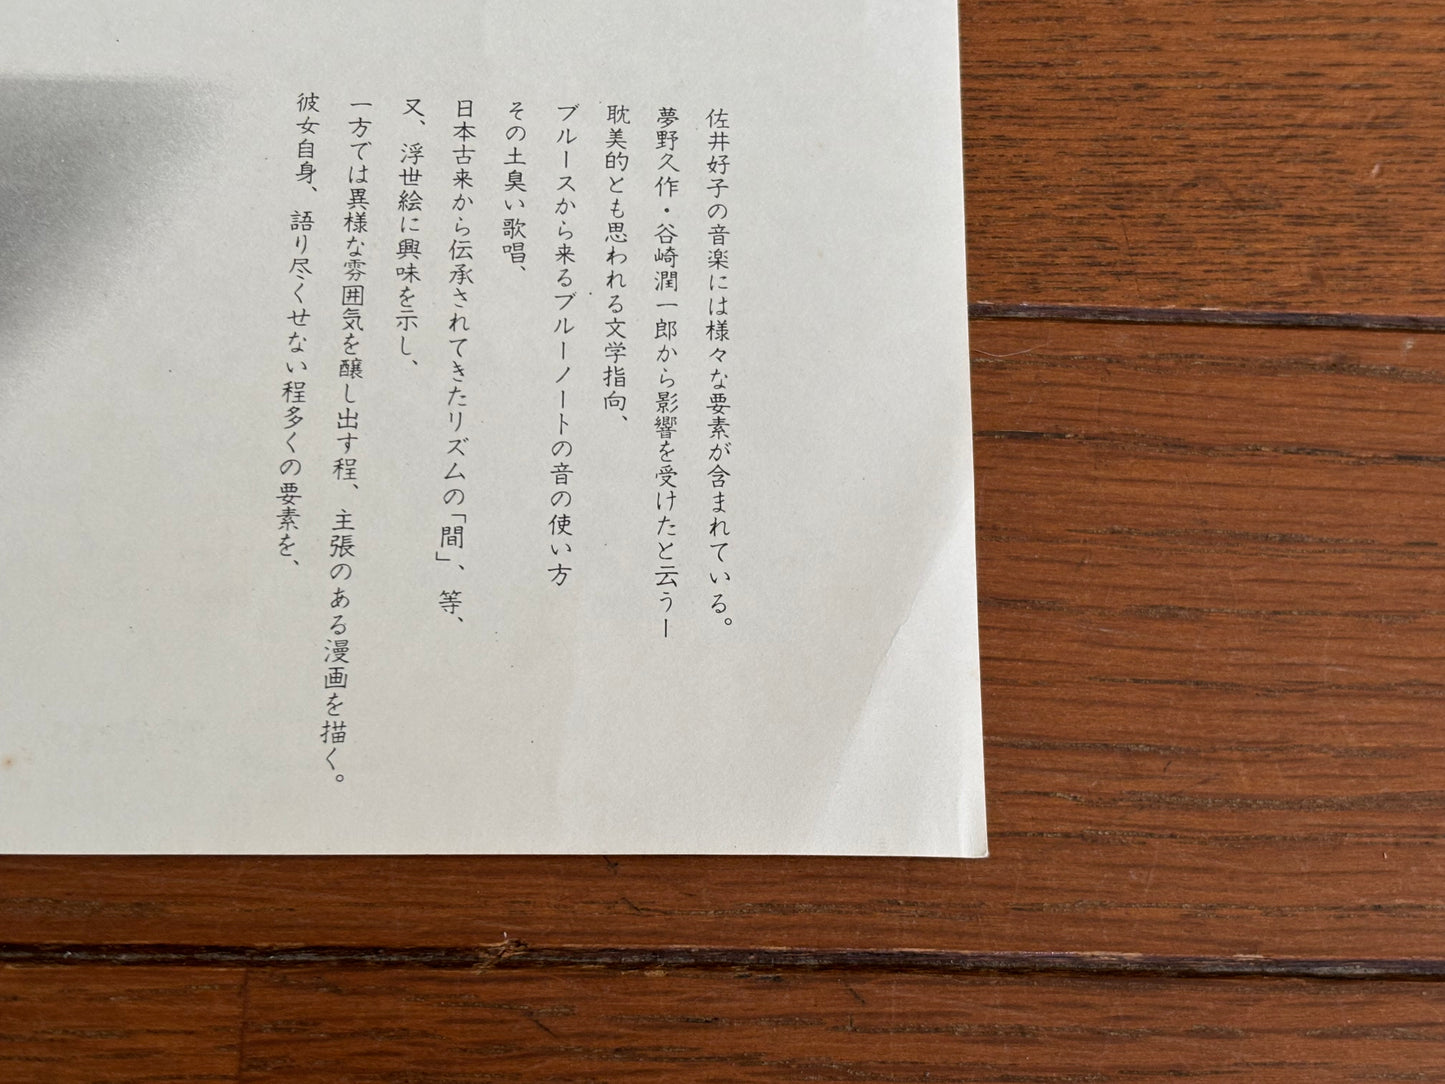 佐井好子の音楽には様々な要素が含まれている。
夢野久作・谷崎潤一郎から影響を受けたと云うー
耽美的とも思われる文学指向、
ブルースから来るブルーノートの音の使い方
その土臭い歌唱、
日本古来から伝承されてきたリズムの「間」、等、
又、浮世絵に興味を示し、
一方では異様な雰囲気を醸し出す程、主張のある漫画を描く。
彼女自身、語り尽くせない程多くの要素を、